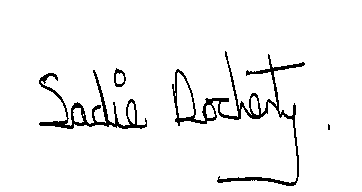 Sadie Docherty.